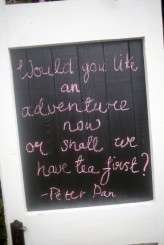 Would you like
an
adventure
now
or shall we
have tea first?
-Peter Pan